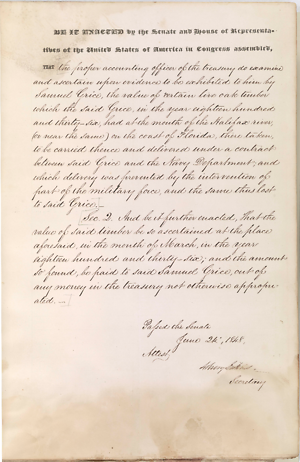 BE IT ENACTED by the Senate and House of Representa-
tives of the United States of America in Congress assembled,
THAT the proper accounting officer of the treasury do examine
and ascertain upon evidence to be exhibited to him by
Samuel Grice, the value of certain live oak timber
which the said Grice, in the year eighteen hundred
and thirty-six, had at the mouth of the Halifax river,
(or near the same) on the coast of Florida, then taken,
to be carried thence and delivered under a contract
between said Grice and the Navy Department; and
which delivery was prevented by the intervention of
part of the military force, and the same thus lost
to said Grice.
Sec. 2. And be it further enacted, That the
value of said timber be so ascertained at the place
aforesaid, in the month of March, in the year
eighteen hundred and thirty-six; and the amount
so found, be paid to said Samuel Grice, out of
any money in the treasury not otherwise appropri-
ated.
Passed the Senate
June 24, 1848.
Attest,
Secretary